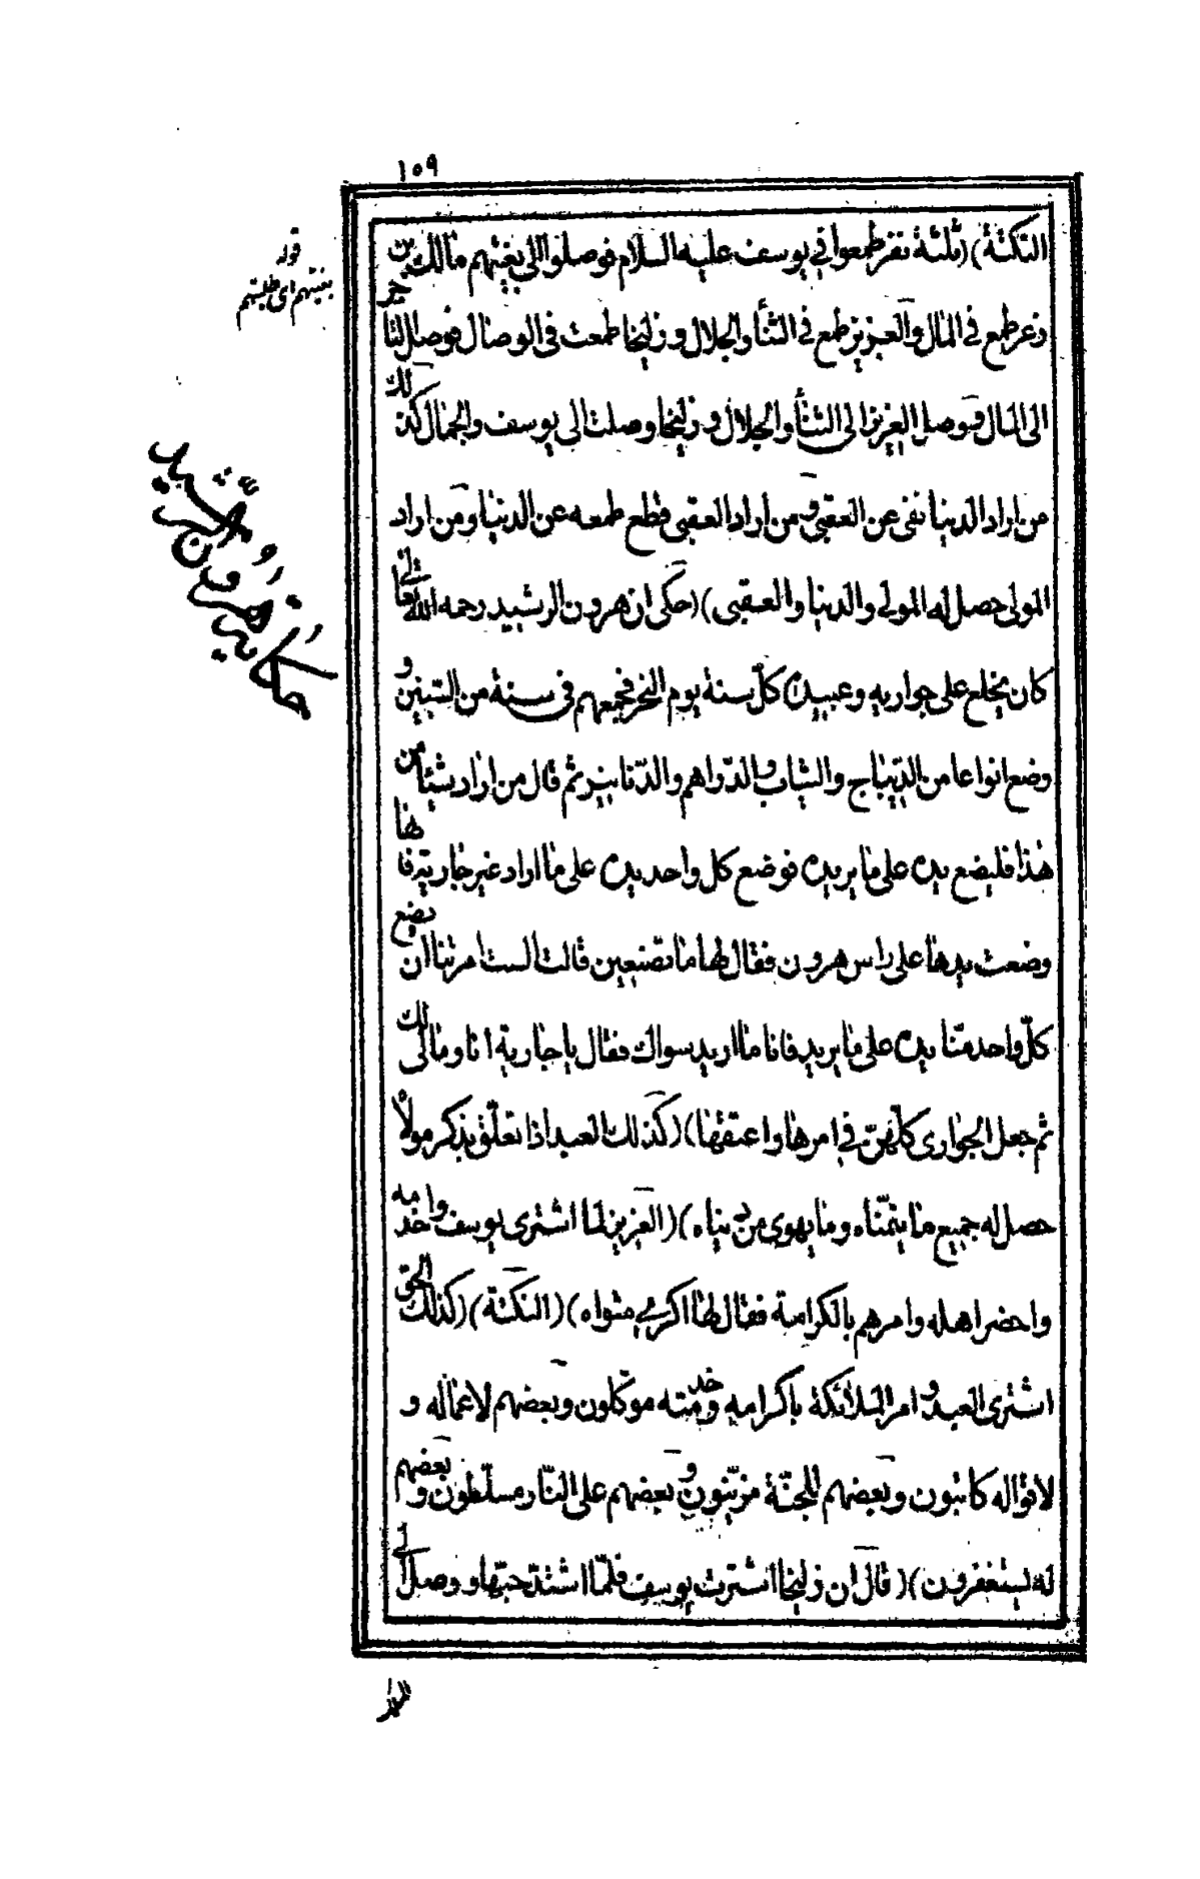 ١٥٩
النكتة) (ثلثة نفر طمعوا في يوسف عليه السلام فوصلوا الى بغيتهم مالك بن
ذعر طمع في المال والعزيز طمع في الثنأ والجلال وزليخا طمعت في الوصال فوصل
الى المال فوصل العزيز الى الثنأ والجلال وزليخا وصلت الى يوسف والجمال كذلك
من اراد الدنيا نفى عن العقبى ومن اراد العقبى قطع طمعه عن الدنيا ومن اراد
المولى حصل له المولى والدنيا والعقبى) (حكى ان هرون الرشيد رحمه الله تعالى
كان يخلع على جواريه وعبيده كلّ سنة يوم النحر فجمعهم في سنة من السنين و
وضع انواعا من الديباج والثياب والدّراهم والدّنانير ثم قال من اراد شيئا من
هذا فليضع يده على ما يريده فوضع كل واحد يده على ما اراد غير جارية فانها
وضعت يدها على راس هرون فقال لها ما تصنعين قالت الست امرتنا ان يضع
كلّ واحد منّا يده على ما يريد فانا ما اريد سواك فقال يا جارية انا ومالى لك
ثم جعل الجوارى كلّهنّ في امرها واعتقها) (كذلك العبد اذا تعلّق بذكر مولاه
حصل له جميع ما يتمنّاه وما يهوى من دنياه) (العزيز لما اشترى يوسف وا خدامه
واحضر اهله وامرهم بالكرامة فقال لها اكرمي مثواه) (النكتة) (كذلك الحق
اشترى العبد وامر الملائكة باكرامه وخدمته موكّلون وبعضهم لاعماله و
لاقواله كاتبون وبعضهم للجنّة مزيّنون وبعضهم على النّار مسلّطون وبعضهم
له يستغفرون) (قال ان زليخا اشترت يوسف فلمّا اشتدّ حبّها ووصل الى
قوله
بغيتهم اى طلبتهم
حكاية هرون الرّشيد